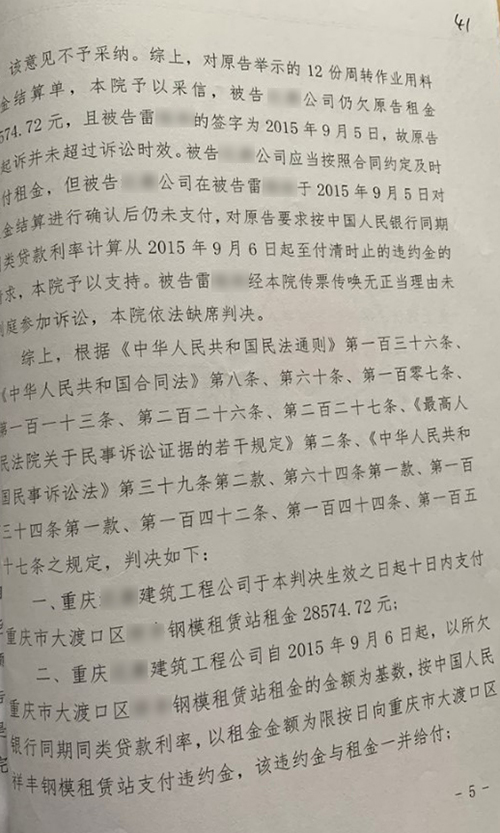 41
该意见不予采纳。综上，对原告举示的 12 份周转作业用料
金结算单，本院予以采信，被告 公司仍欠原告租金
574.72 元，且被告雷 的签字为 2015 年 9 月 5 日，故原告
起诉并未超过诉讼时效。被告 公司应当按照合同约定及时
付租金，但被告 公司在被告雷 于 2015 年 9 月 5 日对
金结算进行确认后仍未支付，对原告要求按中国人民银行同期
类贷款利率计算从 2015 年 9 月 6 日起至付清时止的违约金的
求，本院予以支持。被告雷 经本院传票传唤无正当理由未
到庭参加诉讼，本院依法缺席判决。
综上，根据《中华人民共和国民法通则》第一百三十六条、
《中华人民共和国合同法》第八条、第六十条、第一百零七条、
第一百一十三条、第二百二十六条、第二百二十七条、《最高人
民法院关于民事诉讼证据的若干规定》第二条、《中华人民共和
国民事诉讼法》第三十九条第二款、第六十四条第一款、第一百
三十四条第一款、第一百四十二条、第一百四十四条、第一百五
十七条之规定，判决如下：
一、重庆 建筑工程公司于本判决生效之日起十日内支付
重庆市大渡口区 钢模租赁站租金 28574.72 元；
二、重庆 建筑工程公司自 2015 年 9 月 6 日起，以所欠
重庆市大渡口区 钢模租赁站租金的金额为基数，按中国人民
银行同期同类贷款利率，以租金金额为限按日向重庆市大渡口区
祥丰钢模租赁站支付违约金，该违约金与租金一并给付；
- 5 -